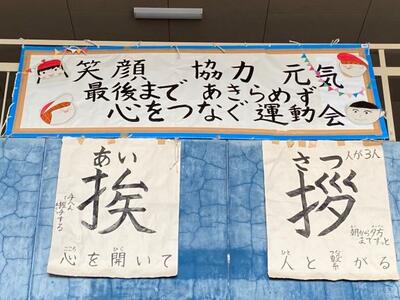 笑顔 協力 元気
最後まで あきらめず
心をつなぐ運動会
あい
挨
こころ ひら
心を開いて
さつ
拶
人が3人
朝から夕方
まで ずっと
ひと つな
人と繋がる